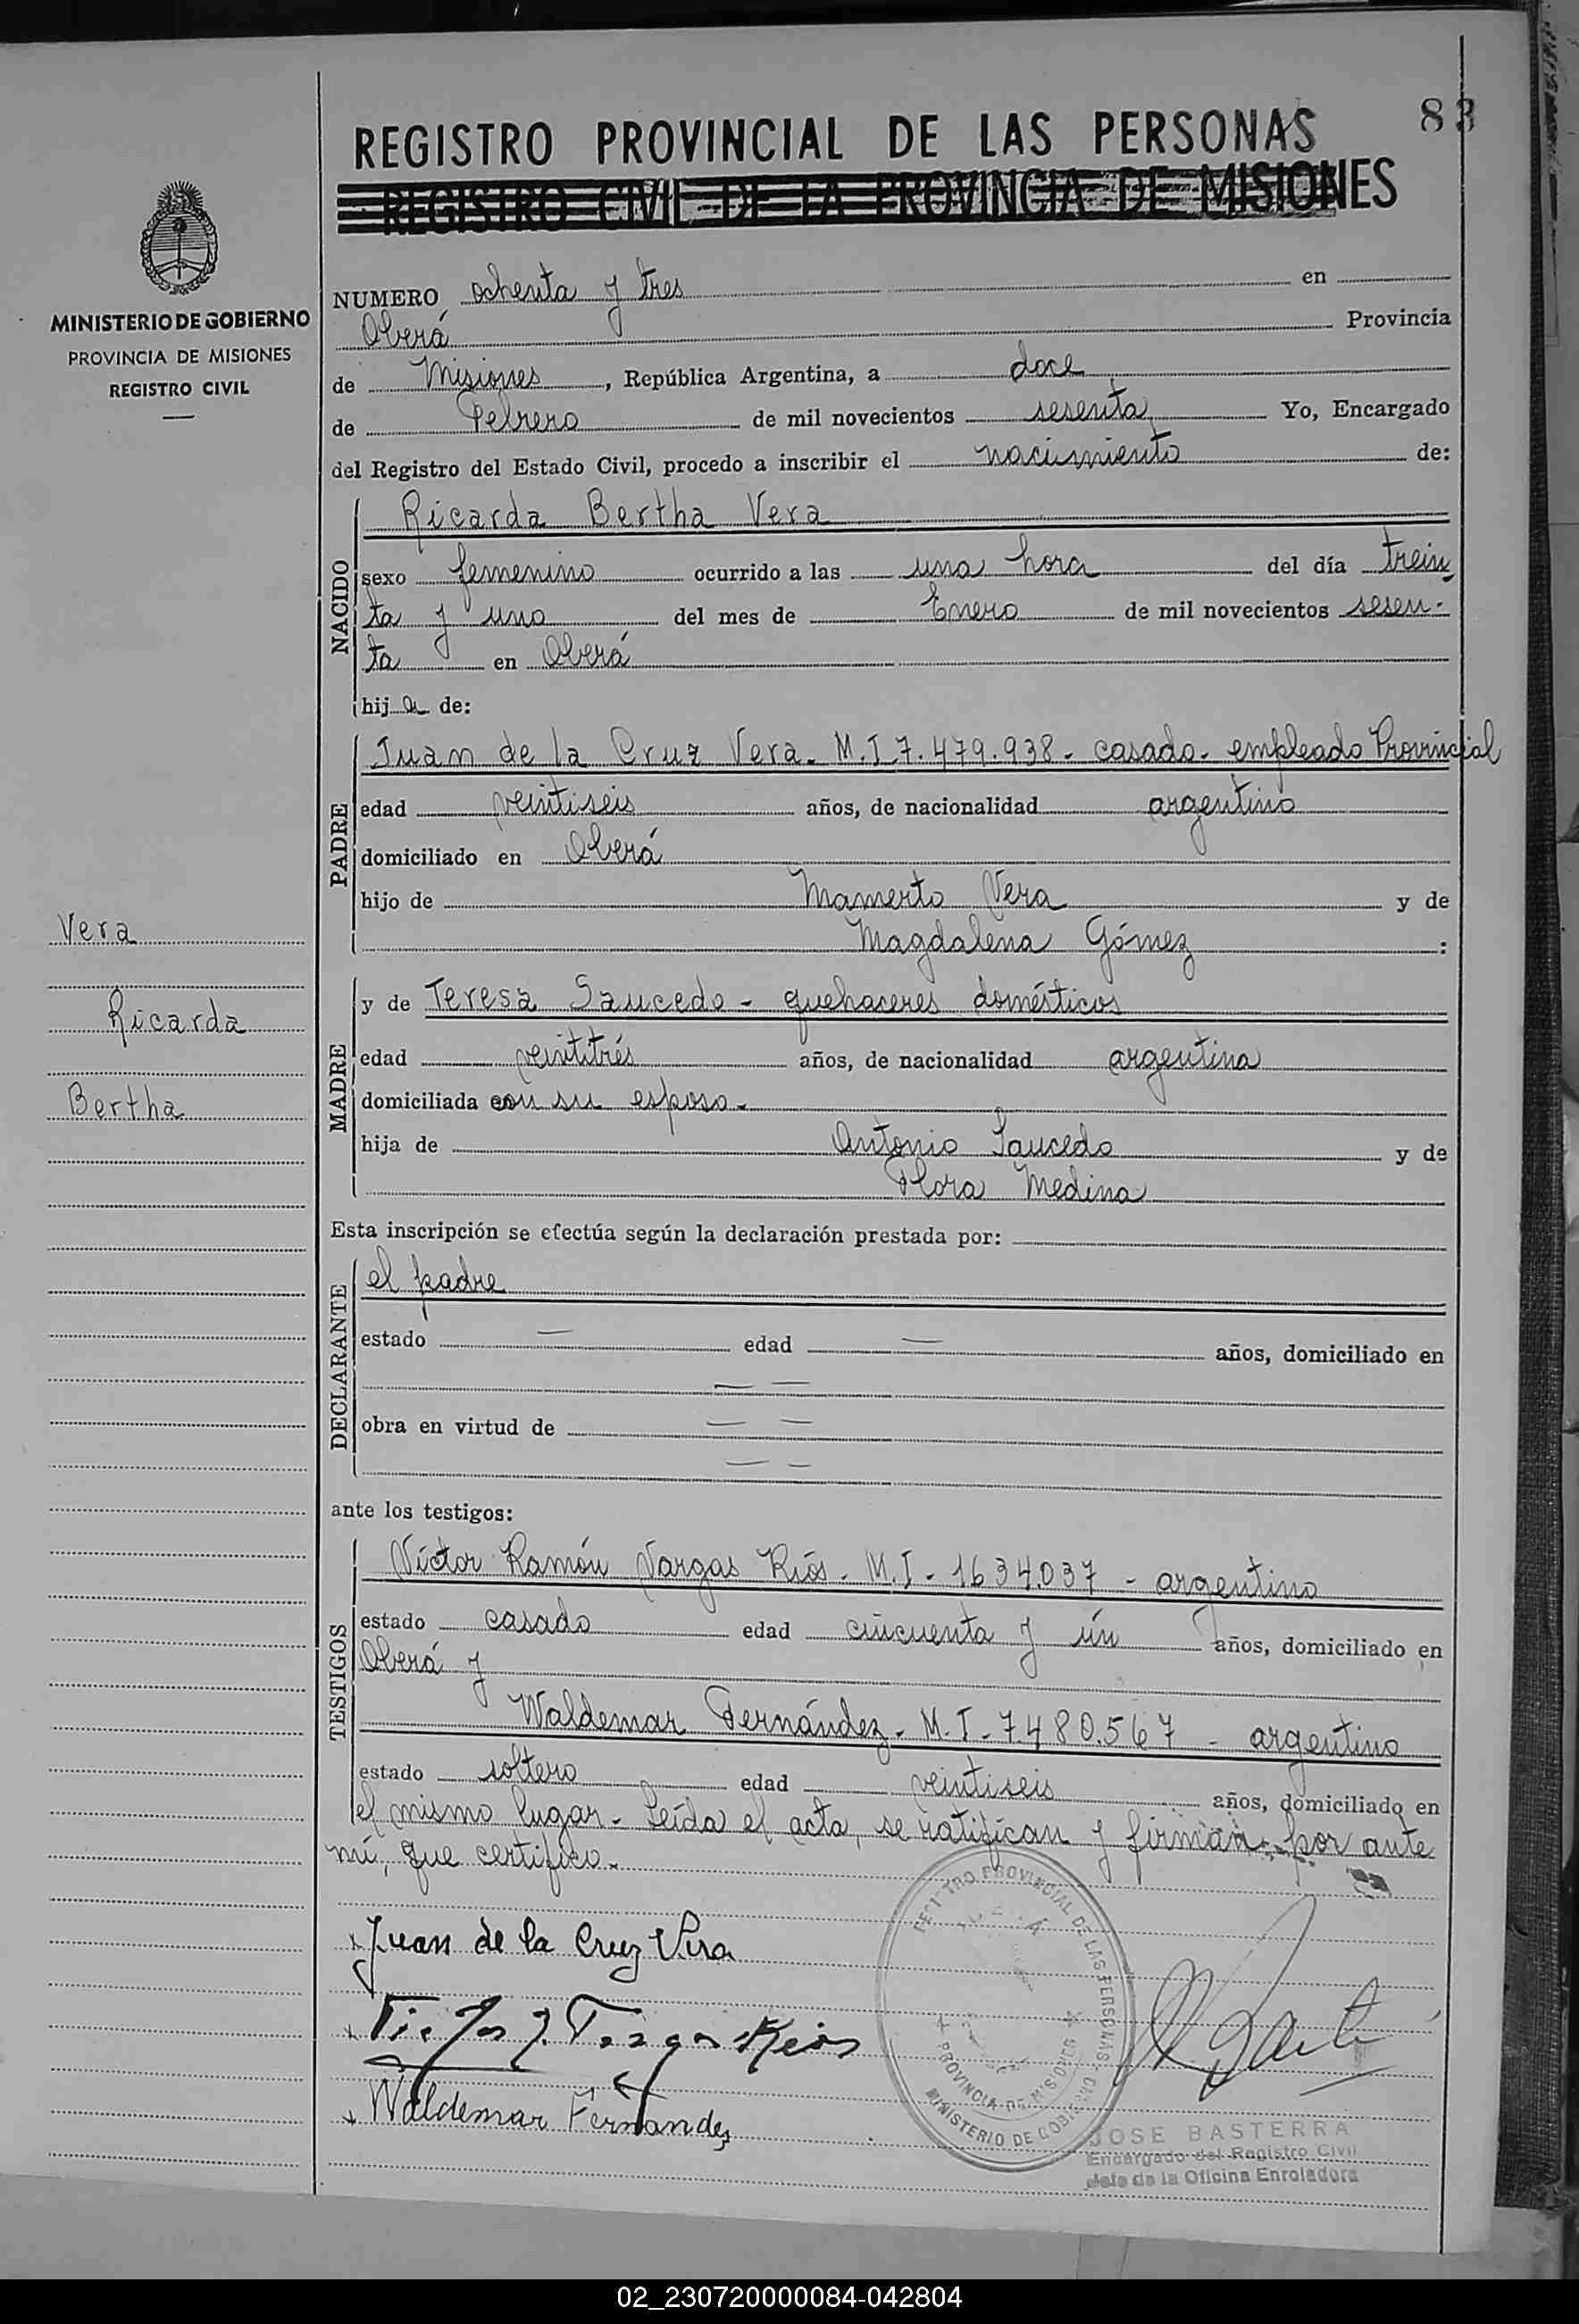 83
REGISTRO PROVINCIAL DE LAS PERSONAS
REGISTRO CIVIL DE LA PROVINCIA DE MISIONES
MINISTERIO DE GOBIERNO
PROVINCIA DE MISIONES
REGISTRO CIVIL
NUMERO ochenta y tres en
Oberá Provincia
de Misiones, República Argentina, a doce
de Febrero de mil novecientos sesenta Yo, Encargado
del Registro del Estado Civil, procedo a inscribir el nacimiento de:
NACIDO
Ricarda Bertha Vera
sexo femenino ocurrido a las una hora del día trein
ta y uno del mes de Enero de mil novecientos sesen-
ta en Oberá
hija de:
PADRE
Juan de la Cruz Vera. M.I 7.479.938 - casado - empleado Provincial
edad veintiseis años, de nacionalidad argentino
domiciliado en Oberá
hijo de Mamerto Vera y de
Magdalena Gómez :
Vera
Ricarda
Bertha
MADRE
y de Teresa Saucedo - quehaceres domésticos
edad veintitrés años, de nacionalidad argentina
domiciliada con su esposo.
hija de Antonio Saucedo y de
Flora Medina
Esta inscripción se efectúa según la declaración prestada por:
DECLARANTE
el padre
estado — edad — años, domiciliado en
— —
obra en virtud de — —
— —
ante los testigos:
TESTIGOS
Víctor Ramón Vargas Ríos - M.I - 1634.037 - argentino
estado casado edad cincuenta y ún años, domiciliado en
Oberá y
Waldemar Fernández - M.I - 7480.567 - argentino
estado soltero edad veintiseis años, domiciliado en
el mismo lugar - Leída el acta, se ratifican y firman por ante
mí, que certifico.
Juan de la Cruz Vera
Waldemar Fernandez
REGISTRO PROVINCIAL DE LAS PERSONAS
PROVINCIA DE MISIONES
MINISTERIO DE GOBIERNO
JOSE BASTERRA
Encargado del Registro Civil
Jefe de la Oficina Enroladora
02_230720000084-042804